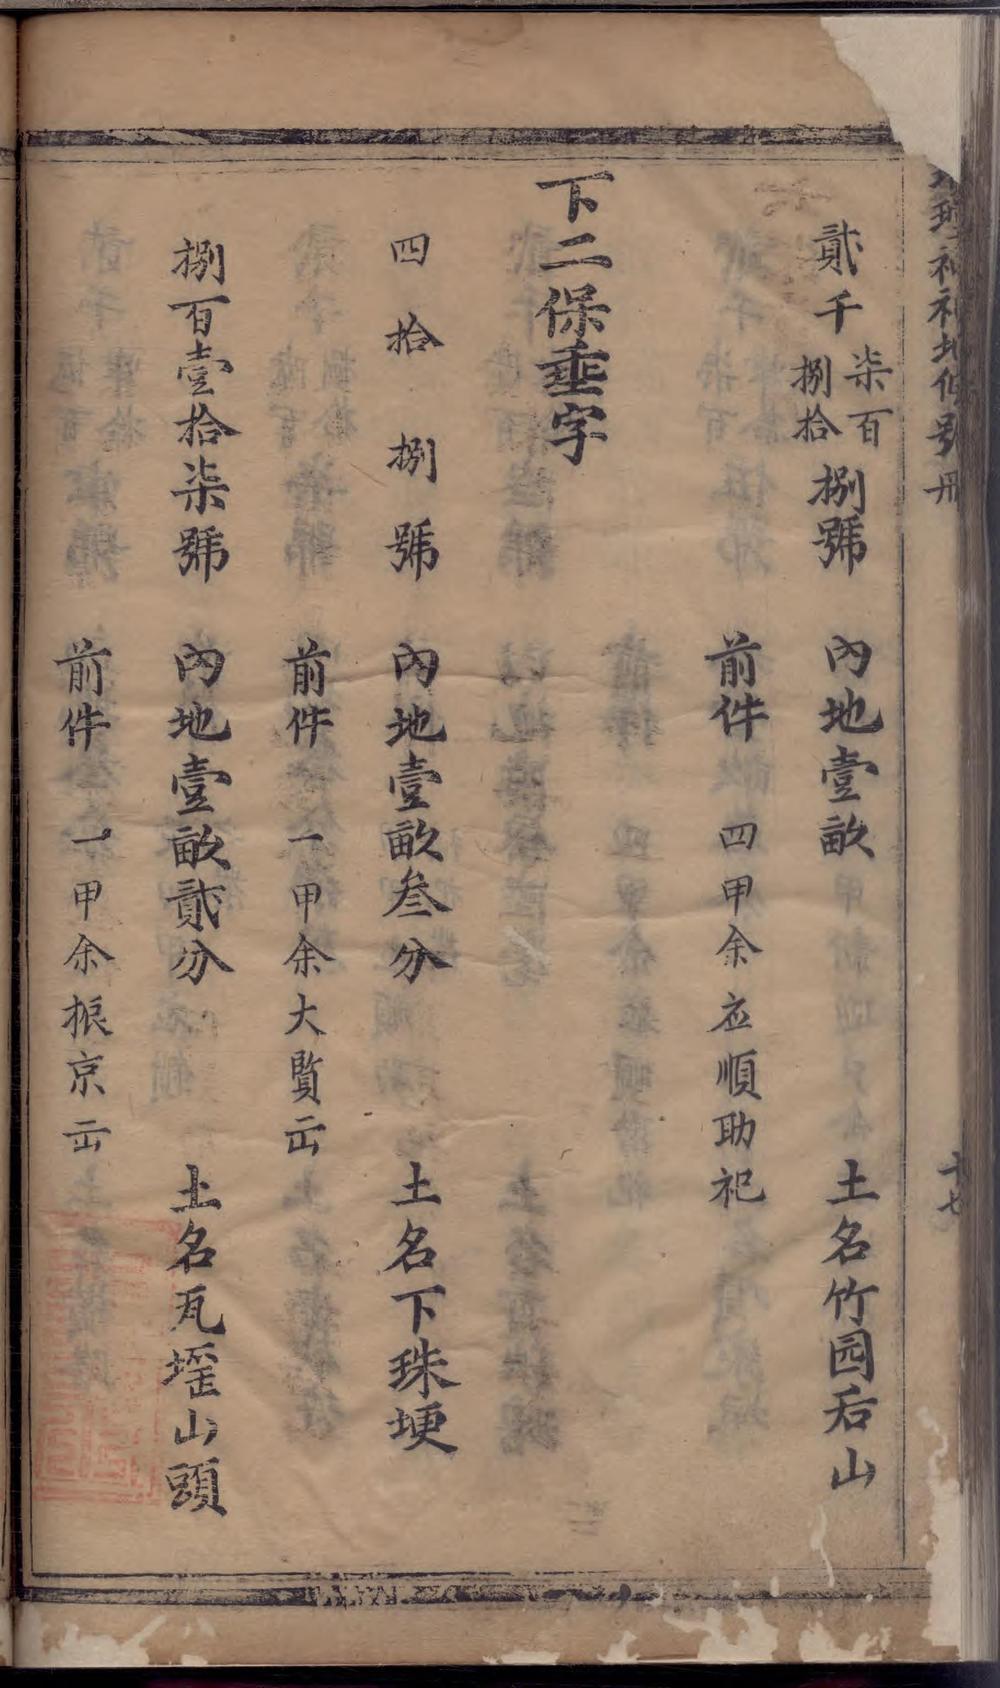 貳千柒百捌拾捌號　內地壹畝　土名竹园后山
前件　四甲余应順助祀
下二保垂字
四拾捌號　內地壹畝叁分　土名下珠埂
前件　一甲余大覧
捌百壹拾柒號　內地壹畝貳分　土名瓦墭山頭
前件　一甲余振京
十七